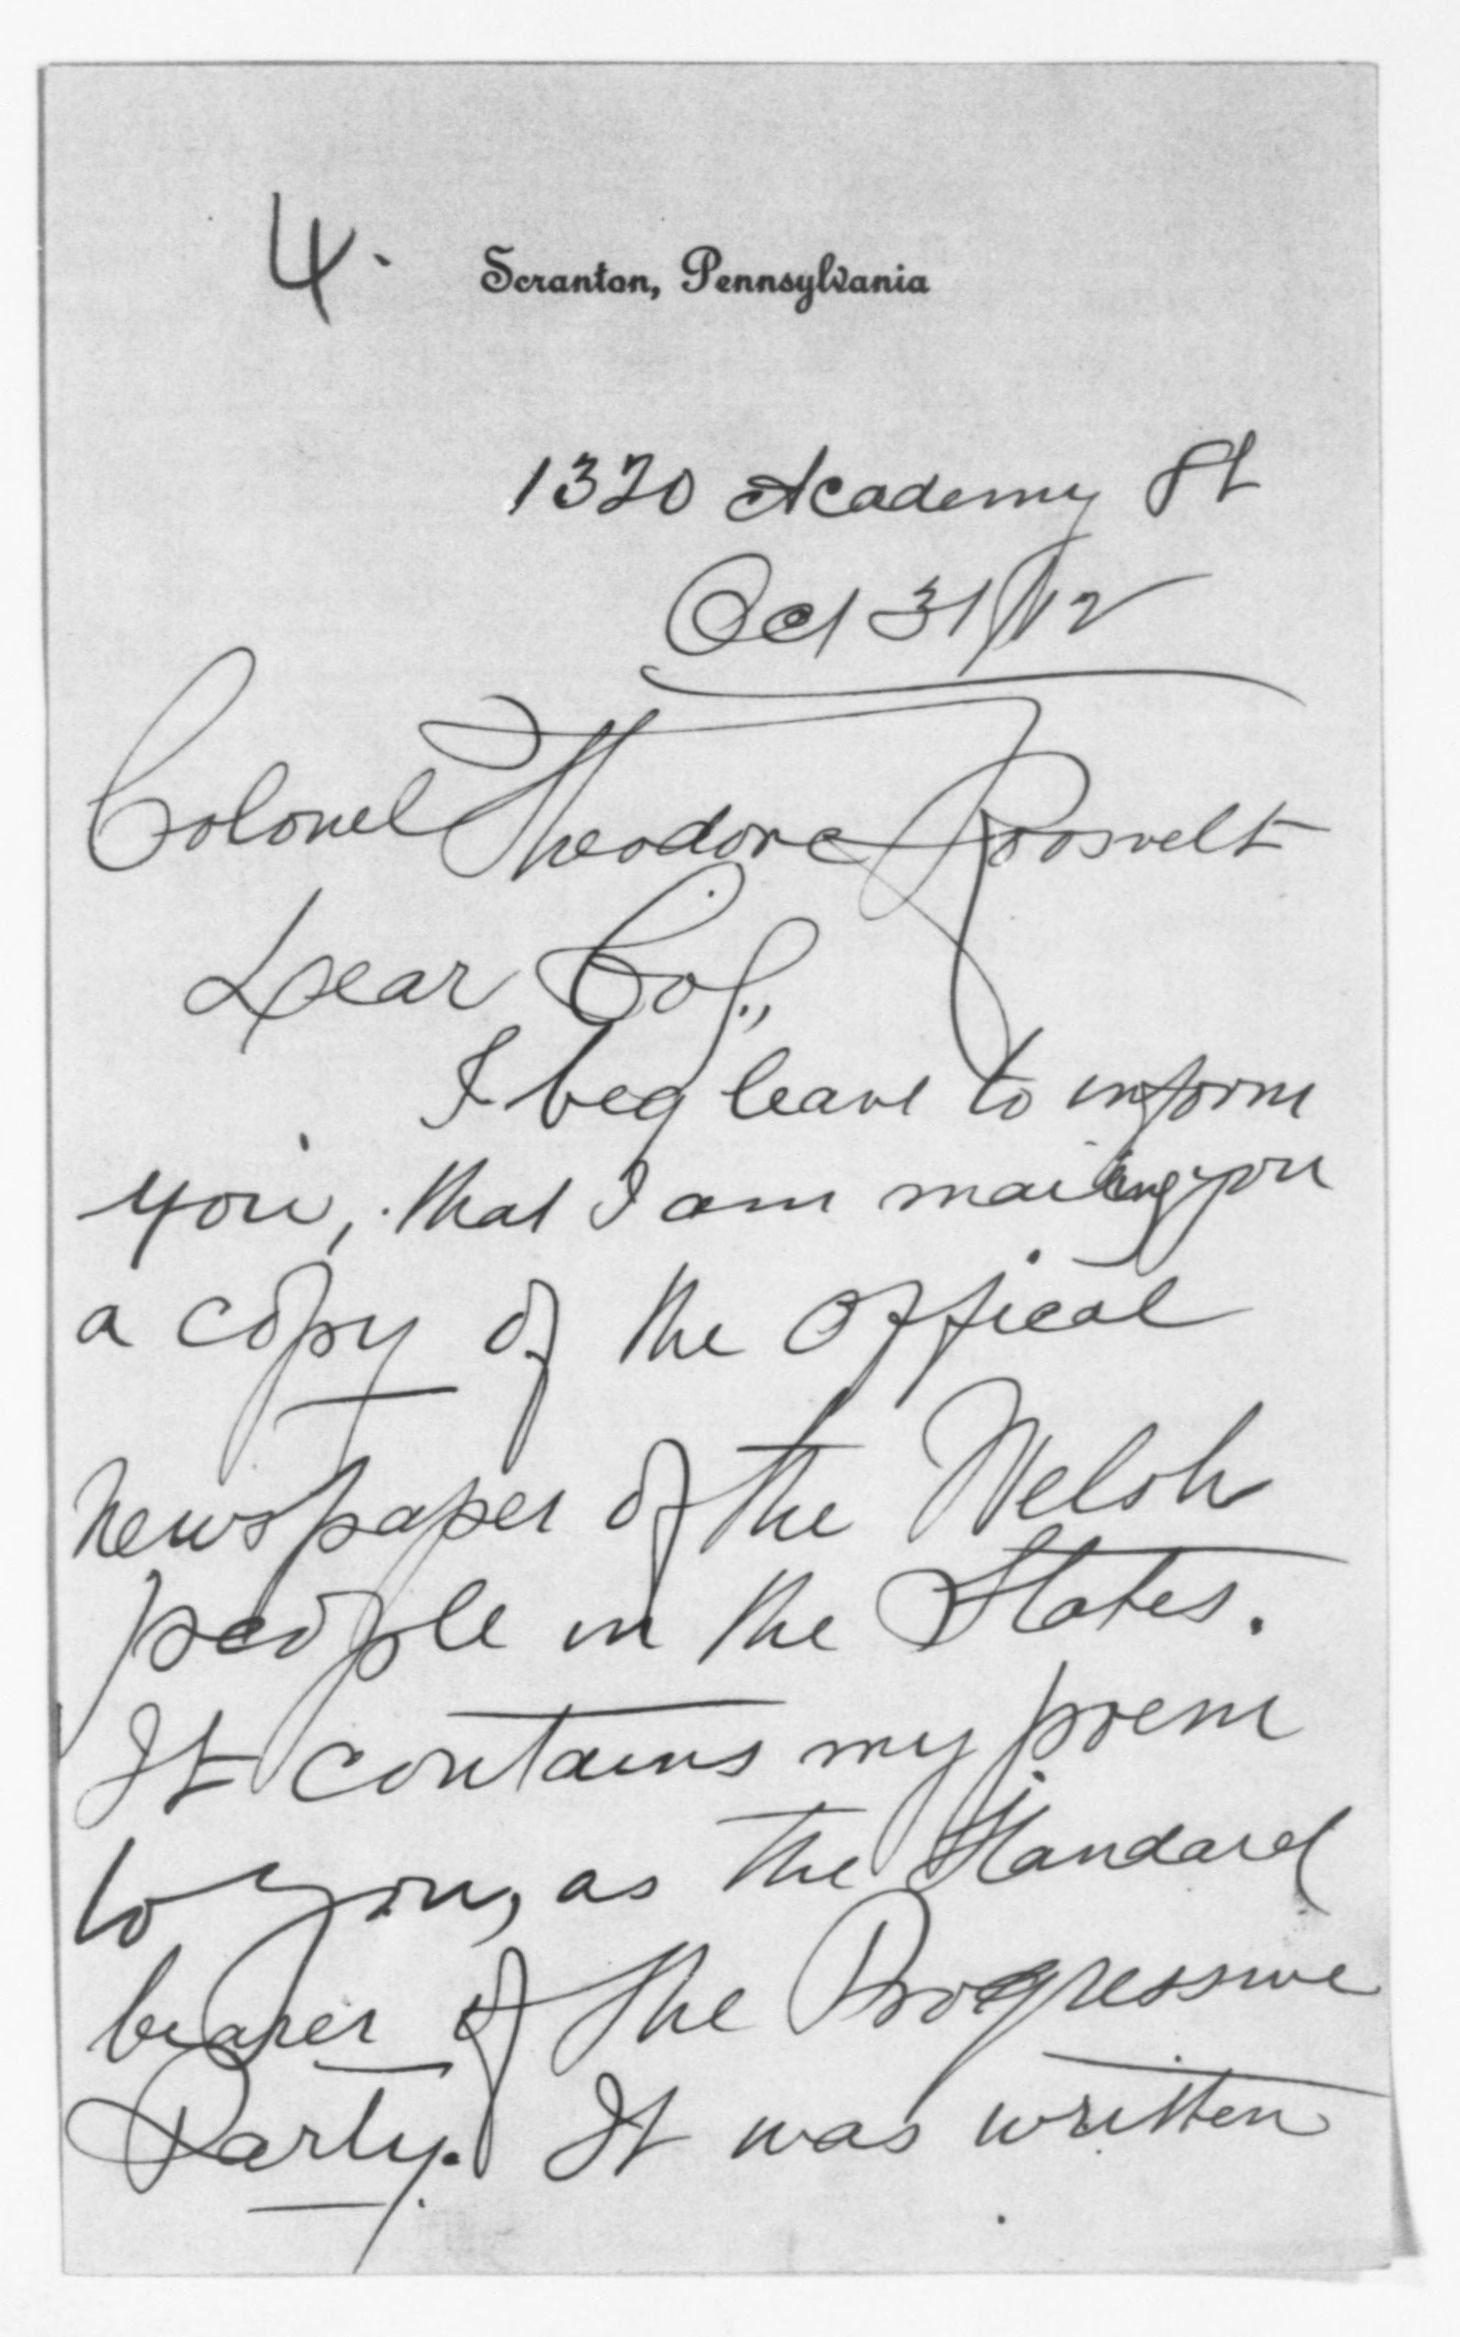 4.
Scranton, Pennsylvania
1320 Academy St
Oct 31/12
Colonel Theodore Roosvelt
Dear Col.,
I beg leave to inform
you, that I am mailing you
a copy of the Offical
newspaper of the Welsh
people in the States.
It contains my poem
to you, as the Standard
bearer of the Progressive
Party. It was written